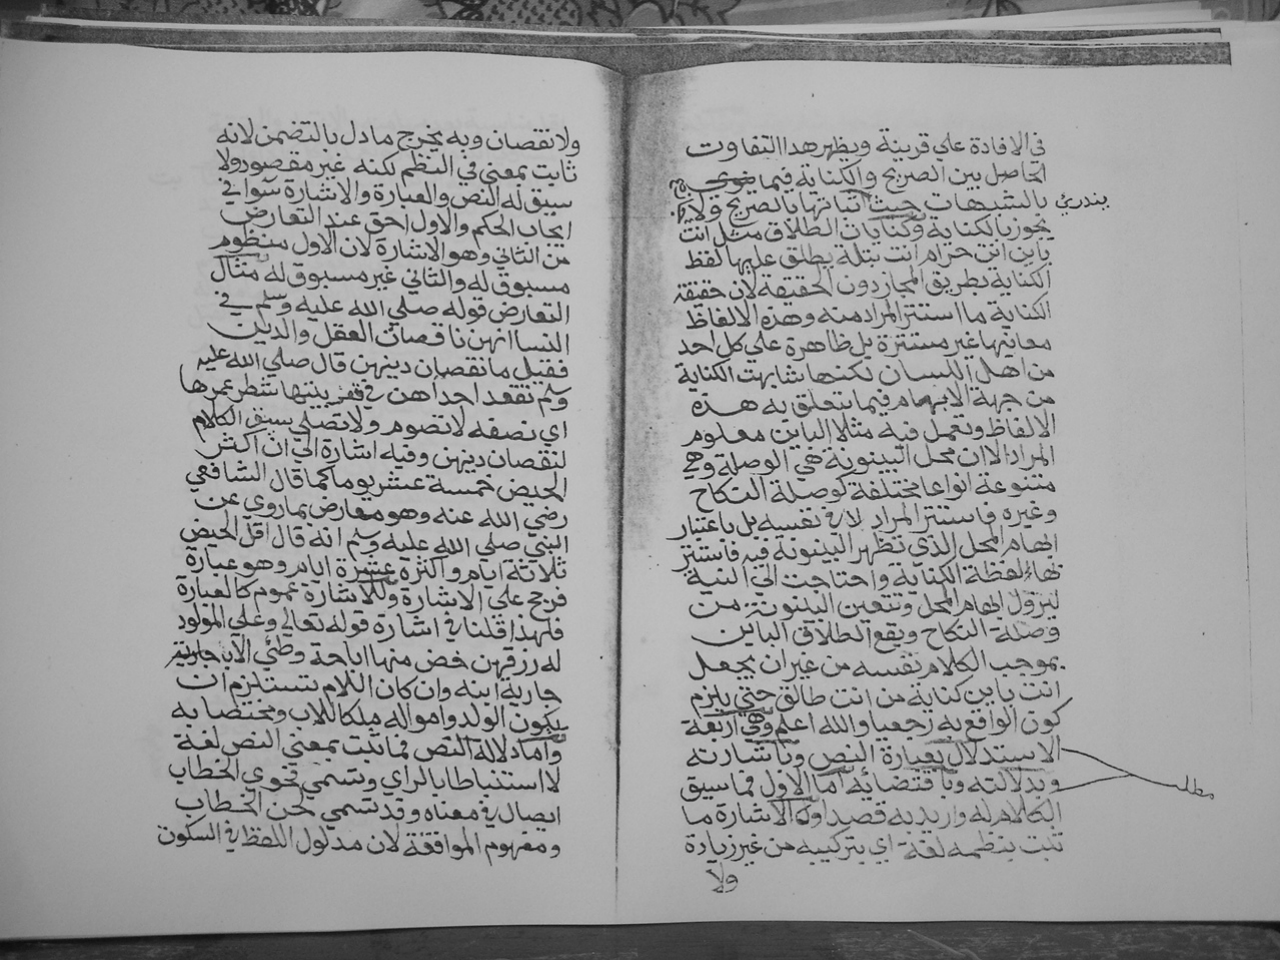 في الافادة علي قرينة ويظهر هذا التفاوت
الحاصل بين الصريح والكناية فيما
بالشبهات حيث اثباتها بالصريح ولا
يندرئ
يجوز بالكناية وكنايات الطلاق مثل انت
باين انت حرام انت بتلة يطلق عليها لفظ
الكناية بطريق المجاز دون الحقيقة لان حقيقة
الكناية ما استتر المراد منه وهذه الالفاظ
معانيها غير مستترة بل ظاهرة علي كل احد
من اهل اللسان لكنها شابهت الكناية
من جهة الابهام فيما يتعلق به هذه
الالفاظ وتعمل فيه مثلا الباين معلوم
المراد الا ان محل البينونة هي الوصلة وهي
متنوعة انواعا مختلفة كوصلة النكاح
وغيره فاستتر المراد لا في نفسه بل باعتبار
ابهام المحل الذي تظهر البينونة فيه فاستتر
لفظة الكناية واحتاجت الي النية
ليزول ابهام المحل وتتعين البينونة من
وصلة النكاح ويقع الطلاق الباين
بموجب الكلام نفسه من غير ان يجعل
انت باين كناية من انت طالق حتي يلزم
كون الواقع به رجعيا والله اعلم وهي اربعة
الاستدلال بعبارة النص وباشارته
وبدلالته وباقتضائه اما الاول فما سيق
مطلب
الكلام له واريد به قصدا والاشارة ما
ثبت بنظمه لغة اي بتركيبه من غير زيادة
ولا
ولا نقصان وبه يخرج ما دل بالتضمن لانه
ثابت بمعني في النظم لكنه غير مقصود ولا
سيق له النص والعبارة والاشارة سوا في
ايجاب الحكم والاول احق عند التعارض
من الثاني وهو الاشارة لان الاول منظوم
مسبوق له والثاني غير مسبوق له مثال
التعارض قوله صلي الله عليه وسلم في
النسا انهن ناقصات العقل والدين
فقيل ما نقصان دينهن قال صلي الله عليه
وسلم تقعد احداهن في قعر بيتها شطر عمرها
اي نصفه لا تصوم ولا تصلي سيق الكلام
لنقصان دينهن وفيه اشارة الي ان اكثر
الحيض خمسة عشر يوما كما قال الشافعي
رضي الله عنه وهو معارض بما روي عن
النبي صلي الله عليه وسلم انه قال اقل الحيض
ثلاثة ايام واكثره عشرة ايام وهو عبارة
فرجح علي الاشارة وللاشارة عموم كالعبارة
فلهذا قلنا في اشارة قوله تعالي وعلي المولود
له رزقهن خص منها اباحة وطئي الاب جاريته
جارية ابنه وان كان اللام تستلزم ان
يكون الولد وامواله ملكا للاب ومختصا به
واما دلالة النص فما ثبت بمعني النص لغة
لا استنباطا بالراي وتسمي فحوي الخطاب
ايصال في معناه وقد تسمي لحن الخطاب
ومفهوم الموافقة لان مدلول اللفظ في السكوت